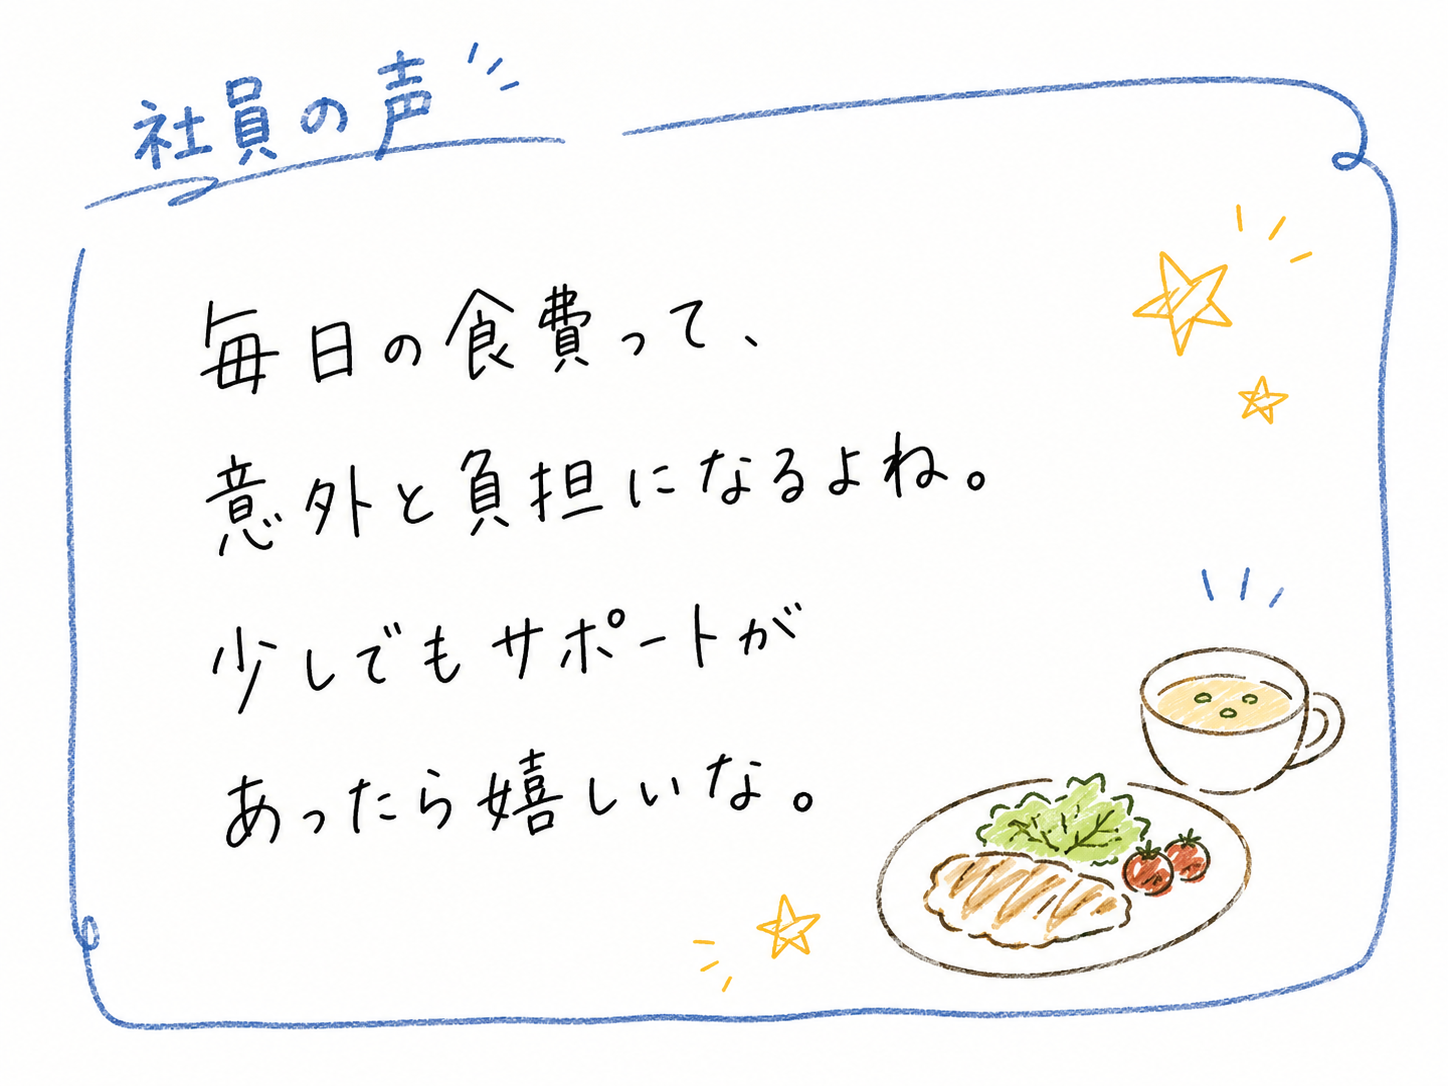 社員の声
毎日の食費って、
意外と負担になるよね。
少しでもサポートが
あったら嬉しいな。